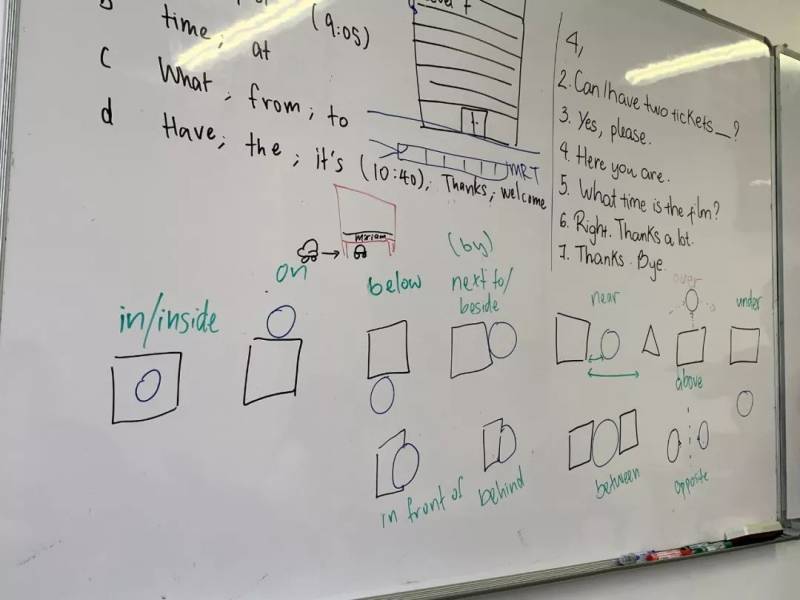 time; at (9:05)
c What; from; to
d Have; the; it's (10:40); Thanks; welcome
MRT
4,
2. Can I have two tickets __?
3. Yes, please.
4. Here you are.
5. What time is the film?
6. Right. Thanks a lot.
7. Thanks. Bye.
in/inside
on
below
(by)
next to/
beside
near
over
above
under
in front of
behind
between
opposite